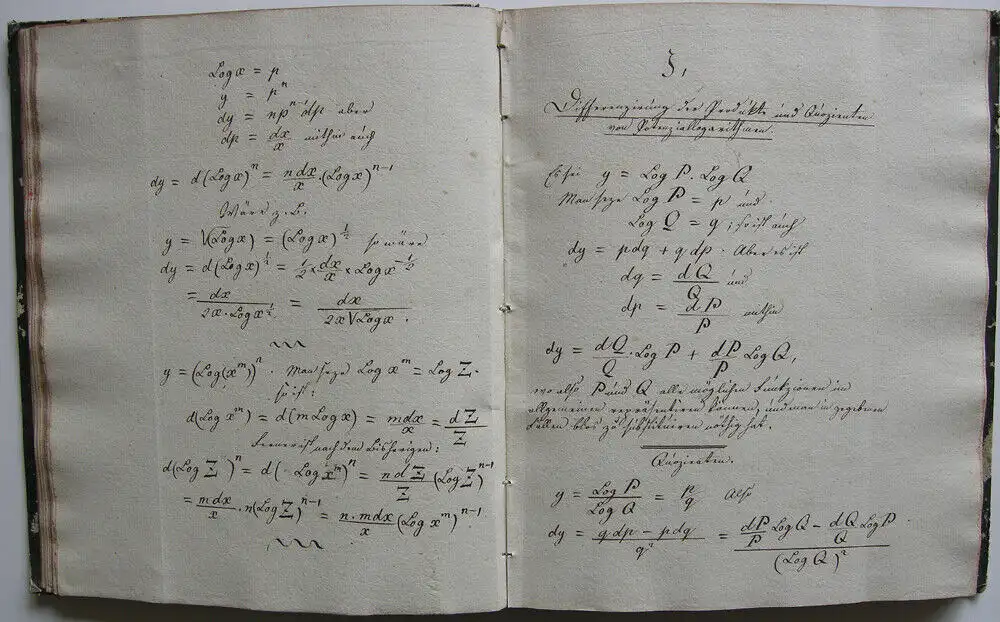 Log x = p
y = pⁿ
dy = npⁿ⁻¹dp aber
dp = dx/x mithin auch
dy = d(Log x)ⁿ = n dx/x · (Log x)ⁿ⁻¹
Wäre z. B.
y = √(Log x) = (Log x)^½ so wäre
dy = d(Log x)^½ = ½ × dx/x × Log x^-½
= dx/(2x · Log x^½) = dx/(2x √Log x) .
y = (Log(xᵐ))ⁿ . Man seze Log xᵐ = Log Z .
so ist :
d(Log xᵐ) = d(m Log x) = mdx/x = dZ/Z
Ferner ist nach dem Bisherigen :
d(Log Z)ⁿ = d(Log xᵐ)ⁿ = n dZ/Z (Log Z)ⁿ⁻¹
= mdx/x · n(Log Z)ⁿ⁻¹ = n·mdx/x (Log xᵐ)ⁿ⁻¹
§,
Differenzirung der Produkte und Quozienten
von Potenziallogarithmen.
Es sei y = Log P . Log Q
Man seze Log P = p und
Log Q = q ; so ist auch
dy = pdq + qdp . Aber es ist
dq = dQ/Q und
dp = dP/P mithin
dy = dQ/Q · Log P + dP/P Log Q,
wo also P und Q alle möglichen Funkzionen im
allgemeinen repräsentiren können, und man in gegebenen
Fällen blos zu substituiren nöthig hat.
Quozienten.
y = Log P/Log Q = p/q Also
dy = (qdp − pdq)/q² = (dP/P Log Q − dQ/Q Log P)/(Log Q)²